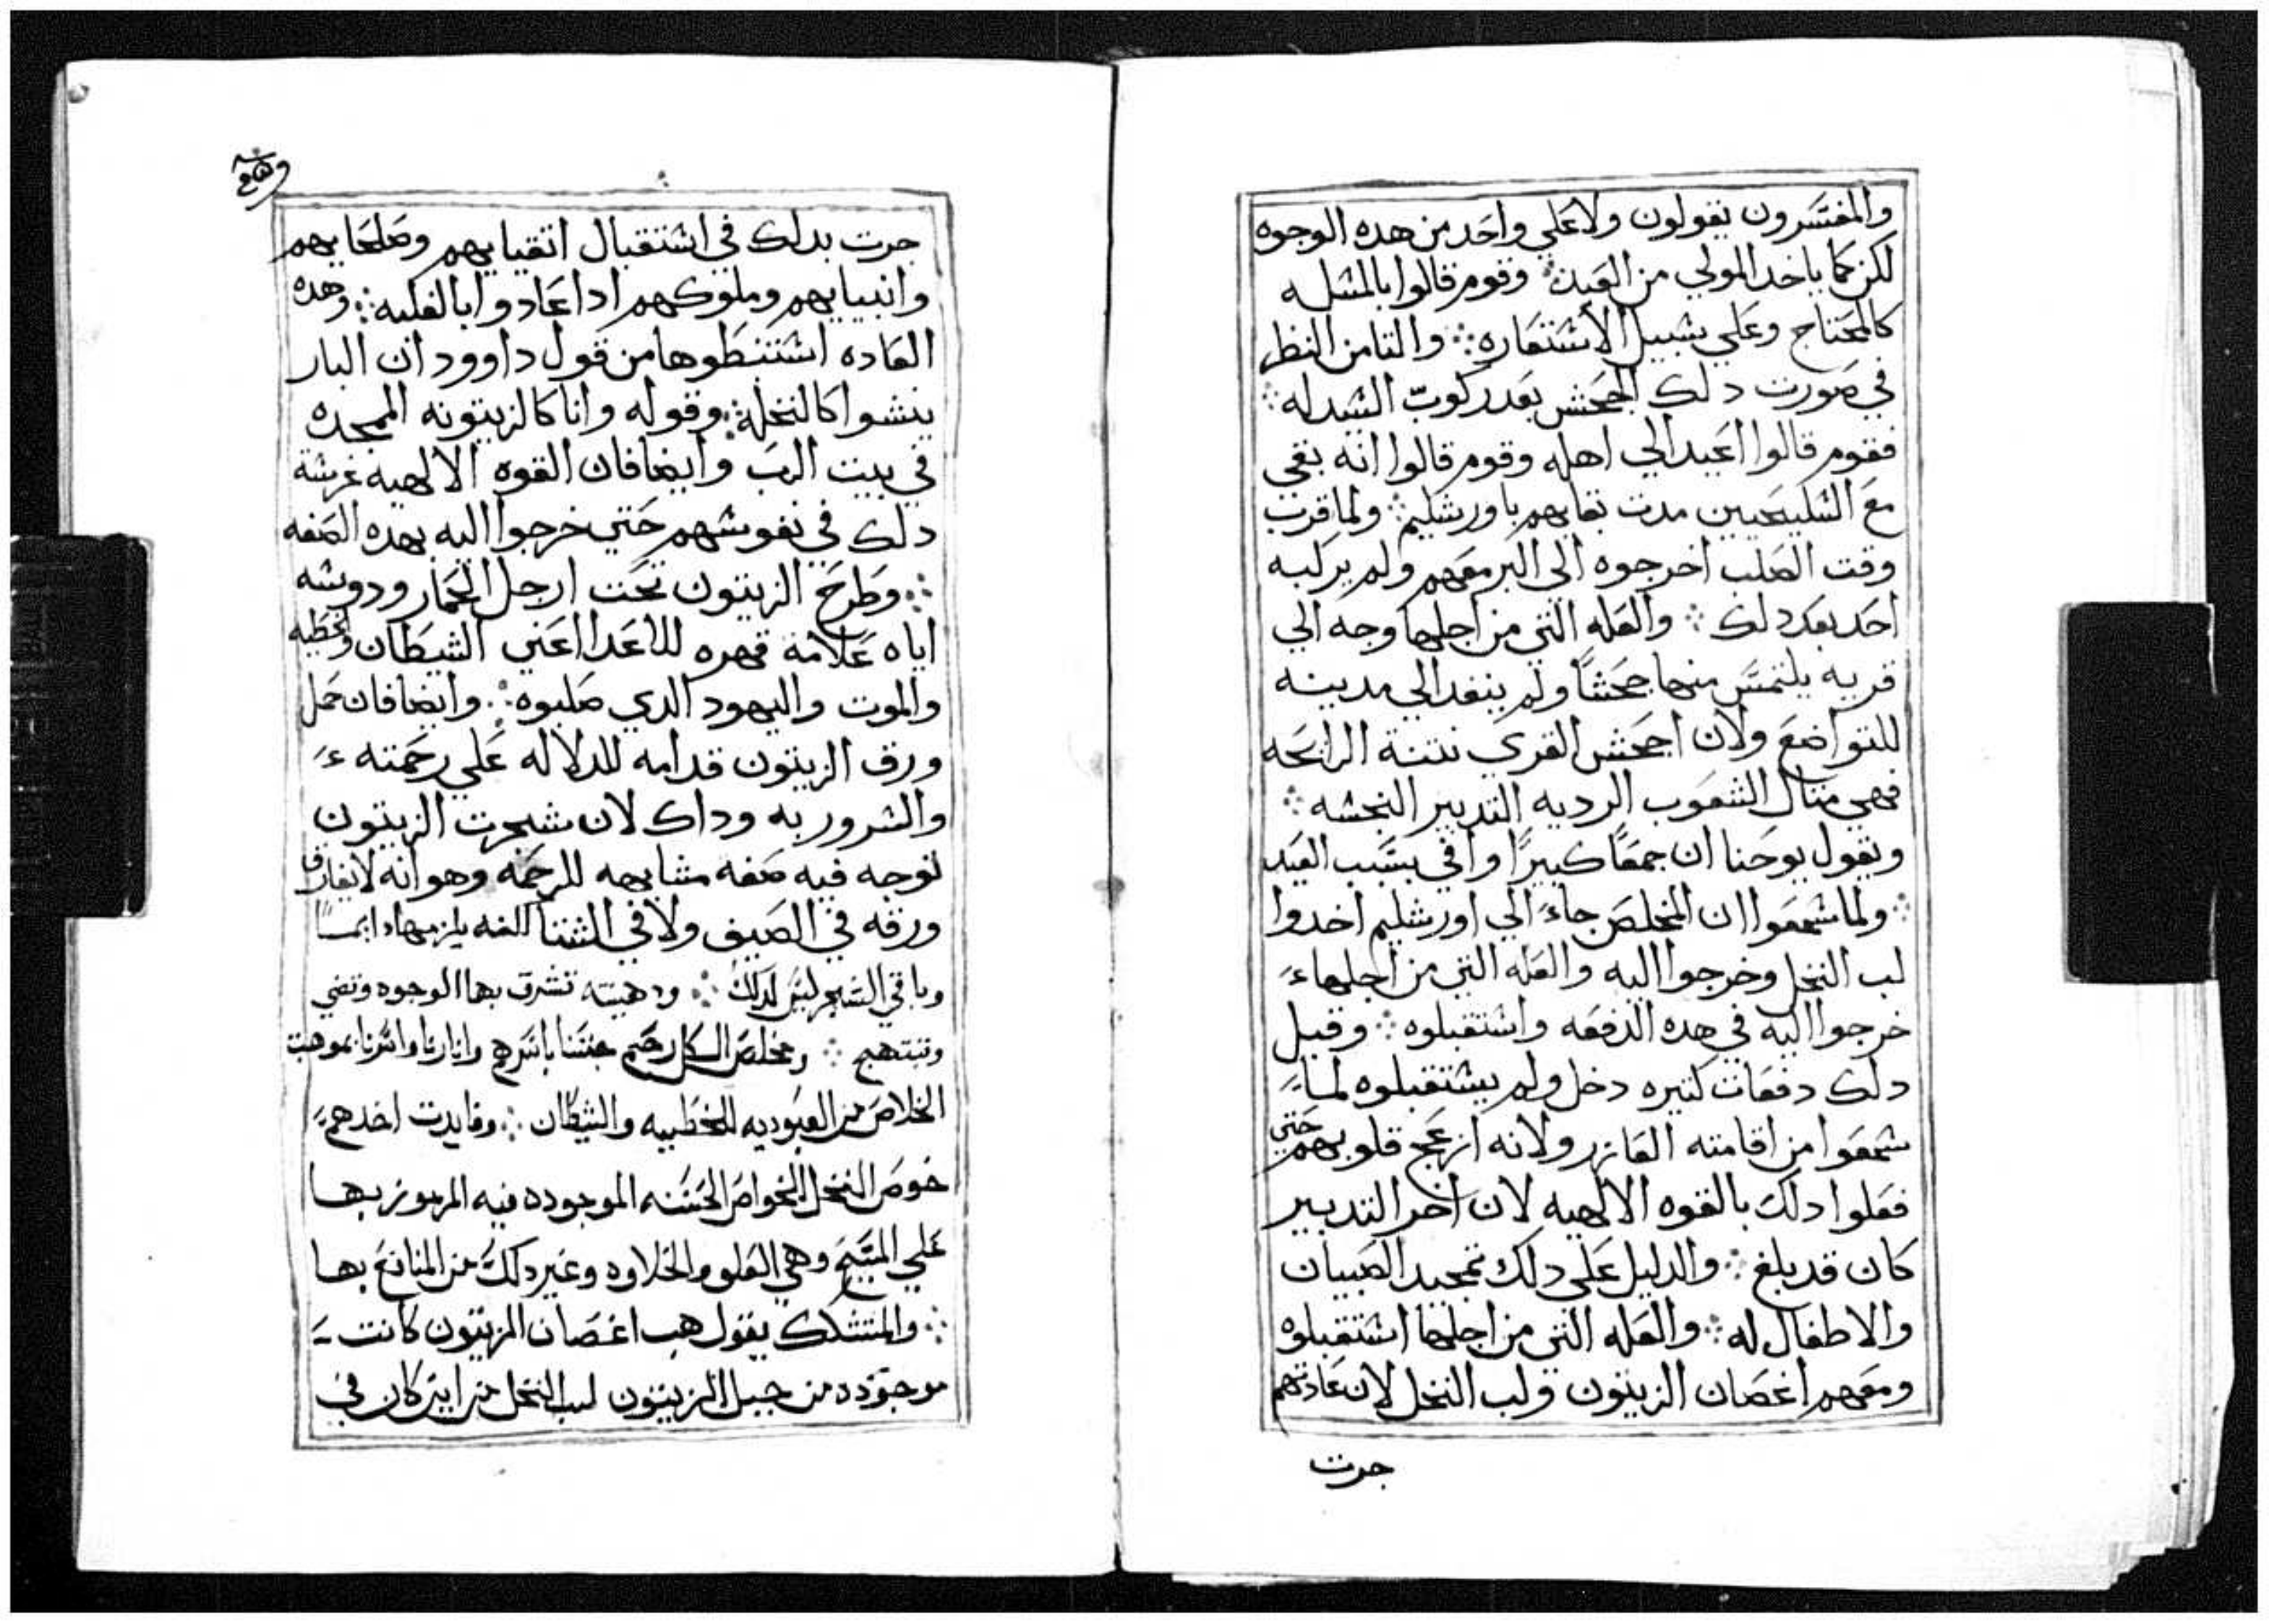 والمفسرون يقولون ولا علي واحد من هده الوجوه
لكن كما ياخد المولي من العبد ∴ وقوم قالوا بالمثله
كالمحتاج وعلي سبيل الاستعاره ∴ والتامن النظر
في صورت دلك الجحش بعد ركوب السيد له ∴
فقوم قالوا اعيد الي اهله وقوم قالوا انه بقي
مع السليحيين مدت بقايهم باورشليم ∴ ولما قرب
وقت الصلب اخرجوه الي البر معهم ولم يركبه
احد بعد دلك ∴ والعله التي من اجلها وجه الي
قريه يلتمس منها جحشًا ولم ينفد الي مدينه
للتواضع ولان اجحش القري نتنة الرايحه
فهي متال الشعوب الرديه التدبير النجسه ∴
ويقول يوحنا ان جمعًا كبيرًا وافي بسبب العيد
∴ ولما سمعوا ان المخلص جاء الي اورشليم اخدوا
لب النخل وخرجوا اليه والعله التي من اجلها
خرجوا اليه في هده الدفعه واستقبلوه ∴ وقبل
دلك دفعات كتيره دخل ولم يستقبلوه لما
سمعوا من اقامته العازر ولانه ازعج قلوبهم حتي
فعلوا دلك بالقوه الالهيه لان اخر التدبير
كان قد بلغ ∴ والدليل علي دلك تمجيد الصبيان
والاطفال له ∴ والعله التي من اجلها استقبلوه
ومعهم اغصان الزيتون ولب النخل لان عادتهم
جرت
جرت بدلك في استقبال اتقيايهم وصلحايهم
وانبيايهم وملوكهم ادا عادوا بالغلبه ∴ وهده
العاده استنبطوها من قول داوود ان البار
ينشوا كالنخلة ∴ وقوله وانا كالزيتونه الممجده
في بيت الرب وايضا فان القوه الالهيه غرسة
دلك في نفوسهم حتي خرجوا اليه بهده الصفه
∴ وطرح الزيتون تحت ارجل الحمار ودوسه
اياه علامة قهره للاعدا اعني الشيطان والخطيه
والموت واليهود الدي صلبوه ∴ وايضا فان حمل
ورق الزيتون قدامه للدلاله علي رحمته
والسرور به وداك لان شجرت الزيتون
توجد فيه صفه مشابهه للرحمه وهو انه لا يفارق
ورقه في الصيف ولا في الشتا لكنه يلزمها دايمًا
وباقي الشجر ليس كدلك ∴ ودهينته تشرق بها الوجوه وتضي
وتبتهج ∴ ومخلص الكل رحم جنسنا باسرهم وانارنا واسرنا بموهبت
الخلاص من العبوديه للخطييه والشيطان ∴ وفايدت اخدهم
خوص النخل للخواص الحسنه الموجوده فيه المرموز بها
علي المسيح وهي العلو والحلاوه وغير دلك من المنافع بها
∴ والمتشكك يقول هب اغصان الزيتون كانت
موجوده من جبل الزيتون لب النخل من اين كان في